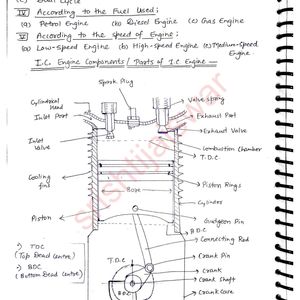 (c) Dual Cycle
IV According to the Fuel Used;
(a) Petrol Engine (b) Diesel Engine (c) Gas Engine
V According to the Speed of Engine;
(a) Low-Speed Engine (b) High-speed Engine (c) Medium-Speed Engine
I.C. Engine Components / Parts of I.C Engine
Spark Plug
Cylinderical head
Valve spring
Inlet Port
Exhaust Port
Inlet Valve
Exhaust Valve
Combustion Chamber
T.D.C
Cooling fins
Bore
Piston Rings
Cylinders
Piston
Gudgeon Pin
B.D.C
Connecting Rod
1) TDC
(Top Dead centre)
T.D.C
Crank Pin
2) BDC
Crank
(Bottom Dead centre)
Crank Shaft
B.D.C
Crank Case